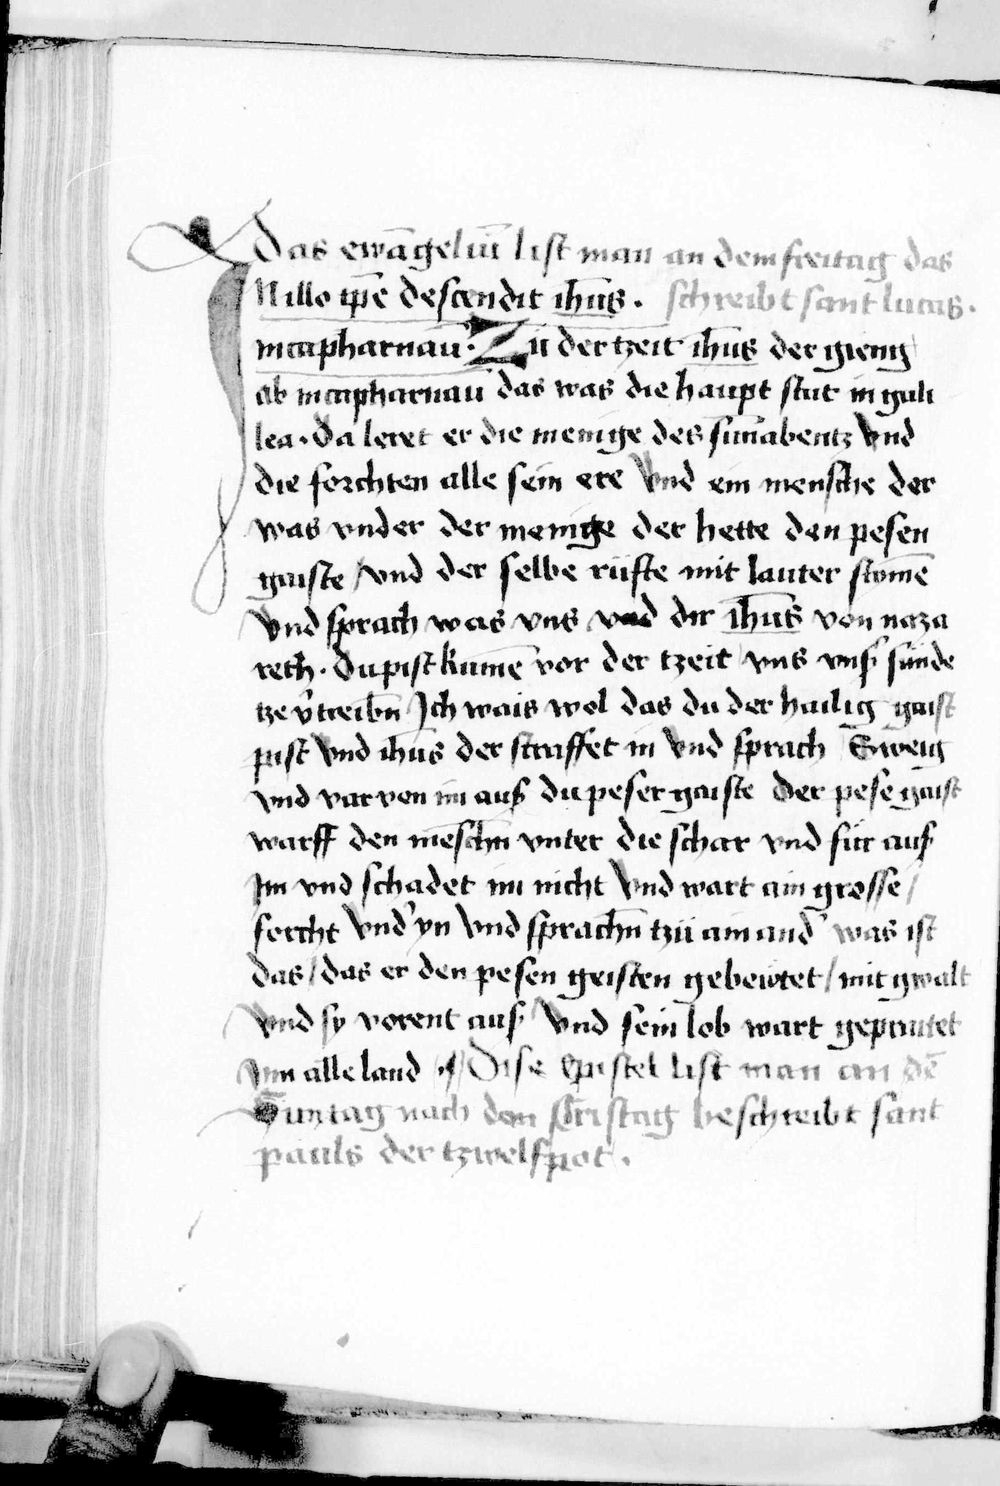 das ewāgeliū list man an dem freitag das
IN illo tp̄e descendit ih̄us . schreibt sant lucas .
in capharnau̅ . Zü der tzeit ih̄us der gieng
ab in capharnau̅ das was die haupt stat in gali
lea . Da leret er die menige des sun̄abentz vnd
die forchten alle sein ere vnd ein mensche der
was vnder der menige der hette den pesen
gaiste / vnd der selbe rüfte mit lauter stym̄e
vnd sprach was vns vnd dir ih̄us von naza
reth . du pist kum̄e vor der tzeit vns vnsʼ sünde
tze vʼtreibn̄ Jch wais wol das du der hailig gaist
pist vnd ih̄us der straffet in vnd sprach Sweig
vnd var von im auß du peser gaiste Der pese gaist
warff den mēschn̄ vnter die schar vnd für auß
Jm vnd schadet im nicht vnd wart ain grosse /
forcht vndʼ yn vnd sprachn̄ tzü ain andʼ was ist
das / das er den pesen geisten gebewtet / mit gwalt
vnd sy vorent auß vnd sein lob wart gepraitet
Jnn alle land . Dise epistel list man an dē
Suntag nach dem Cristag beschreibt sant
pauls der tzwelfpot .